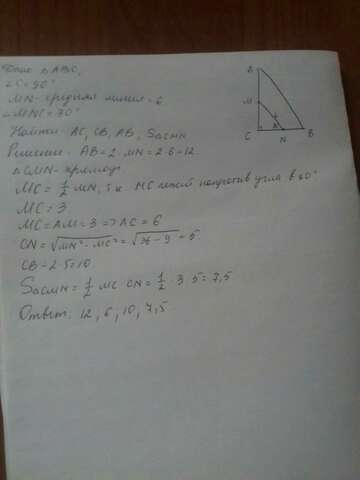 Дано: △ABC,
∠C = 90°
MN - средняя линия = 6
∠MNC = 30°
Найти: AC, CB, AB, S△CMN
Решение: AB = 2 · MN = 2·6 = 12
△CMN - прямоуг.
MC = 1/2 MN, т.к. MC лежит напротив угла в 30°
MC = 3
MC = AM = 3 => AC = 6
CN = √MN² - MC² = √36 - 9 = 5
CB = 2·5 = 10
S△CMN = 1/2 MC · CN = 1/2 · 3 · 5 = 7,5
Ответ: 12, 6, 10, 7,5.
M
C
N
B